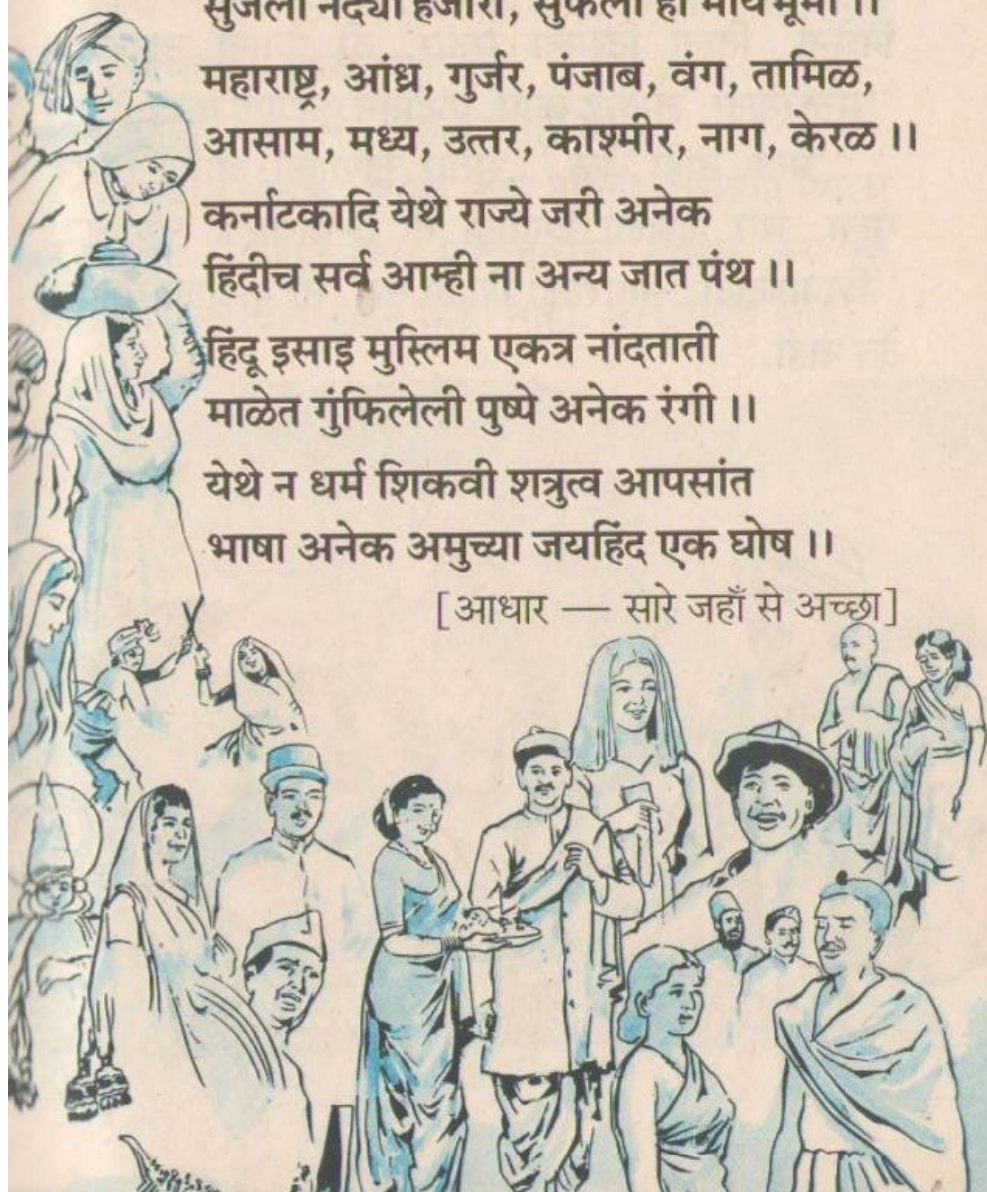 सुजला नद्या हजारो, सुफला ही मायभूमी ।।
महाराष्ट्र, आंध्र, गुर्जर, पंजाब, वंग, तामिळ,
आसाम, मध्य, उत्तर, काश्मीर, नाग, केरळ ।।
कर्नाटकादि येथे राज्ये जरी अनेक
हिंदीच सर्व आम्ही ना अन्य जात पंथ ।।
हिंदू इसाइ मुस्लिम एकत्र नांदताती
माळेत गुंफिलेली पुष्पे अनेक रंगी ।।
येथे न धर्म शिकवी शत्रुत्व आपसांत
भाषा अनेक अमुच्या जयहिंद एक घोष ।।
[आधार — सारे जहाँ से अच्छा]